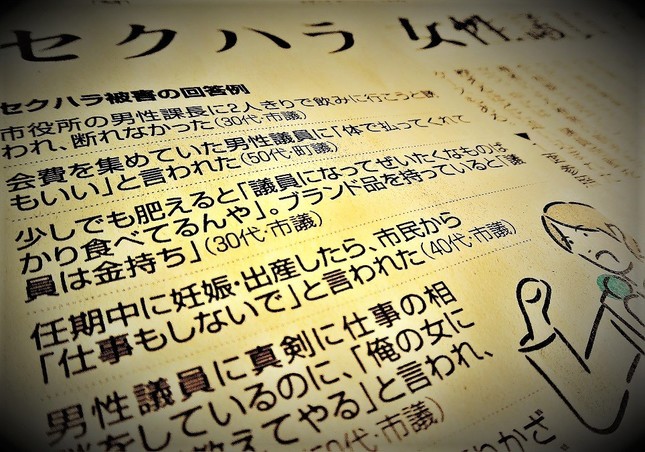 セクハラ 女性議
セクハラ被害の回答例
市役所の男性課長に2人きりで飲みに行こうと
われ、断れなかった(30代・市議)
会費を集めていた男性議員に「体で払ってくれて
もいい」と言われた(50代・町議)
少しでも肥えると「議員になってぜいたくなものば
かり食べてるんや」。ブランド品を持っていると「議
員は金持ち」(30代・市議)
任期中に妊娠・出産したら、市民から
「仕事もしないで」と言われた(40代・市議)
男性議員に真剣に仕事の相
をしているのに、「俺の女に
えてやる」と言われ、
0代・市議)